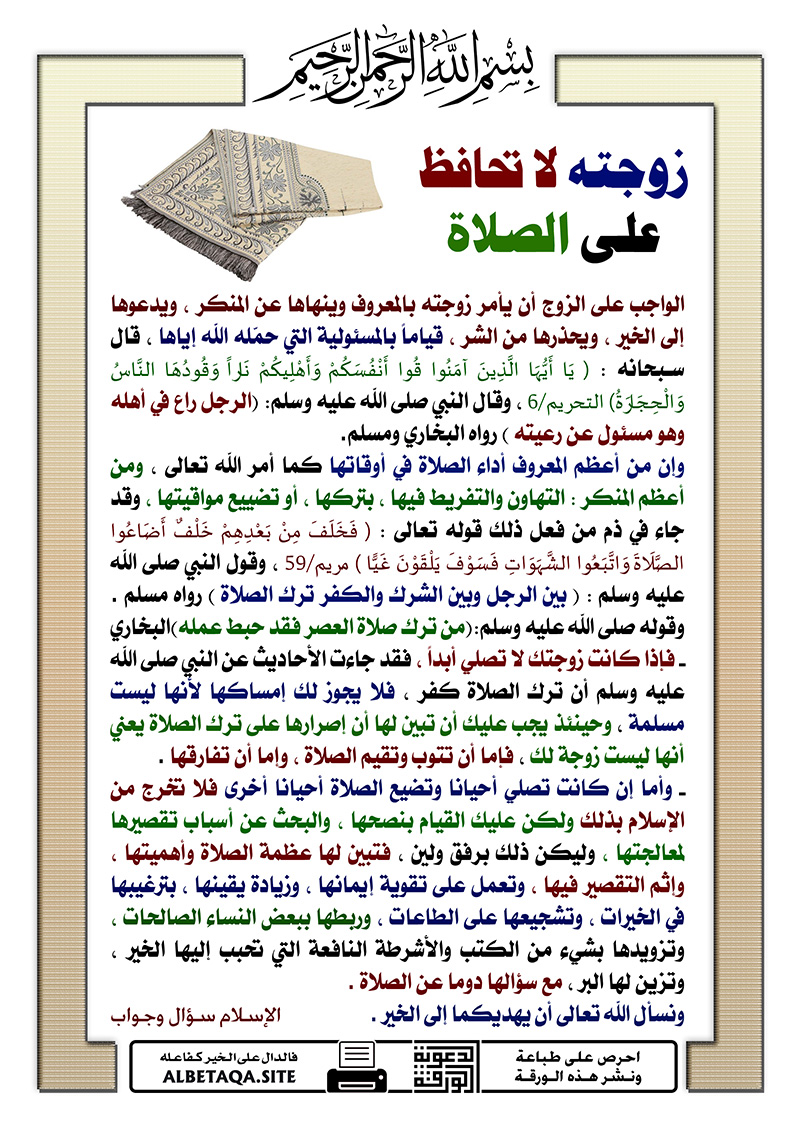 بِسْمِ اللَّهِ الرَّحْمَنِ الرَّحِيمِ
زوجته لا تحافظ
على الصلاة
الواجب على الزوج أن يأمر زوجته بالمعروف وينهاها عن المنكر ، ويدعوها
إلى الخير ، ويحذرها من الشر ، قياماً بالمسئولية التي حمّله الله إياها ، قال
سبحانه : ( يَا أَيُّهَا الَّذِينَ آمَنُوا قُوا أَنْفُسَكُمْ وَأَهْلِيكُمْ نَاراً وَقُودُهَا النَّاسُ
وَالْحِجَارَةُ) التحريم/6 ، وقال النبي صلى الله عليه وسلم: (الرجل راع في أهله
وهو مسئول عن رعيته ) رواه البخاري ومسلم.
وإن من أعظم المعروف أداء الصلاة في أوقاتها كما أمر الله تعالى ، ومن
أعظم المنكر : التهاون والتفريط فيها ، بتركها ، أو تضييع مواقيتها ، وقد
جاء في ذم من فعل ذلك قوله تعالى : ( فَخَلَفَ مِنْ بَعْدِهِمْ خَلْفٌ أَضَاعُوا
الصَّلَاةَ وَاتَّبَعُوا الشَّهَوَاتِ فَسَوْفَ يَلْقَوْنَ غَيًّا ) مريم/59 ، وقول النبي صلى الله
عليه وسلم : ( بين الرجل وبين الشرك والكفر ترك الصلاة ) رواه مسلم .
وقوله صلى الله عليه وسلم:(من ترك صلاة العصر فقد حبط عمله)البخاري
ـ فإذا كانت زوجتك لا تصلي أبداً ، فقد جاءت الأحاديث عن النبي صلى الله
عليه وسلم أن ترك الصلاة كفر ، فلا يجوز لك إمساكها لأنها ليست
مسلمة ، وحينئذ يجب عليك أن تبين لها أن إصرارها على ترك الصلاة يعني
أنها ليست زوجة لك ، فإما أن تتوب وتقيم الصلاة ، وإما أن تفارقها .
ـ وأما إن كانت تصلي أحيانا وتضيع الصلاة أحيانا أخرى فلا تخرج من
الإسلام بذلك ولكن عليك القيام بنصحها ، والبحث عن أسباب تقصيرها
لمعالجتها ، وليكن ذلك برفق ولين ، فتبين لها عظمة الصلاة وأهميتها ،
وإثم التقصير فيها ، وتعمل على تقوية إيمانها ، وزيادة يقينها ، بترغيبها
في الخيرات ، وتشجيعها على الطاعات ، وربطها ببعض النساء الصالحات ،
وتزويدها بشيء من الكتب والأشرطة النافعة التي تحبب إليها الخير ،
وتزين لها البر ، مع سؤالها دوما عن الصلاة .
ونسأل الله تعالى أن يهديكما إلى الخير .
الإسلام سؤال وجواب
احرص على طباعة
ونشر هذه الورقة
الورقة
الدعوية
فالدال على الخير كفاعله
ALBETAQA.SITE